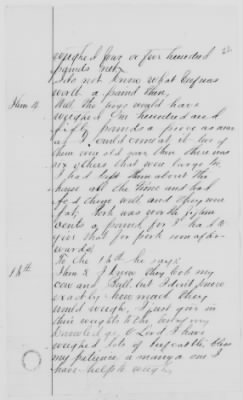 weighed four or five hundred
pounds nett.
I do not know what beef was
worth a pound then.
Item 14 Well the hogs would have
weighed One hundred and
fifty pounds a piece as near
as I could come at it two of
them one old par then there was
six others that were large ones
I had kept them about the
house all the time and had
fed them well and they were
fat. Pork was worth fifteen
cents a pound for I had to
give that for pork soon after
wards.
To the 18th he says:
18th I know they took my
cow and bull but I don't know
exactly how much they
would weigh, I just give in
their weights to the best of my
knowledge. O Lord I have
weighed lots of beef cattle, bless
my patience a many a one I
have helped weigh